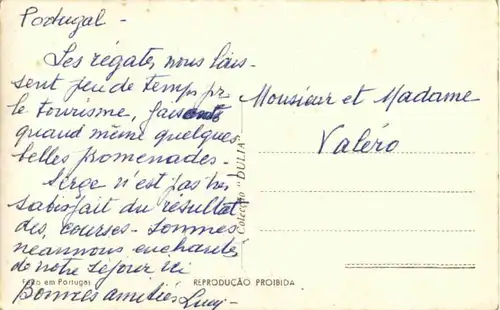 Portugal -
Les régates nous lais-
sent peu de temps pr
le tourisme, faisons
quand même quelques
belles promenades.
Serge n'est pas très
satisfait du résultat
des courses - sommes
néanmoins enchantés
de notre séjour ici
Bonnes amitiés
Monsieur et Madame
Valéro
Colecção "DULIA"
Feito em Portugal
REPRODUÇÃO PROIBIDA